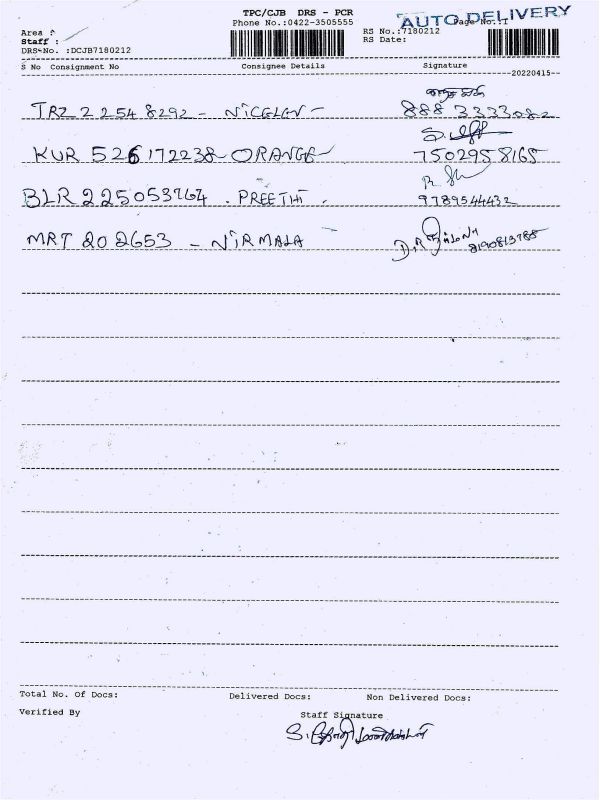 TPC/CJB DRS - PCR
AUTO DELIVERY
Phone No.:0422-3505555
Page No.:1
Area :
RS No.:7180212
Staff :
RS Date:
DRS-No. :DCJB7180212
S No Consignment No Consignee Details Signature
20220415
TRZ 2 2548292 - NICELGN -
888 3333082
KUR 526172238 - ORANGE
7502958165
BLR 225053764 . PREETHI .
9789544432
MRT 202653 - NIRMALA
8190813788
Total No. Of Docs: Delivered Docs: Non Delivered Docs:
Verified By
Staff Signature